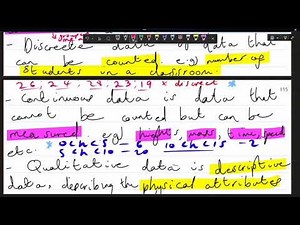 - Discrete data is data that
can be counted. e.g number of
students in a classroom.
26, 24, 29, 23, 19 * discrete
- Continuous data is data that
cannot be counted but can be
measured. e.g heights, mass, time, speed
etc. * 0<h<5 - 6 10<h<15 - 2
5<h<10 - 20
- Qualitative data is descriptive
data, describing the physical attributes